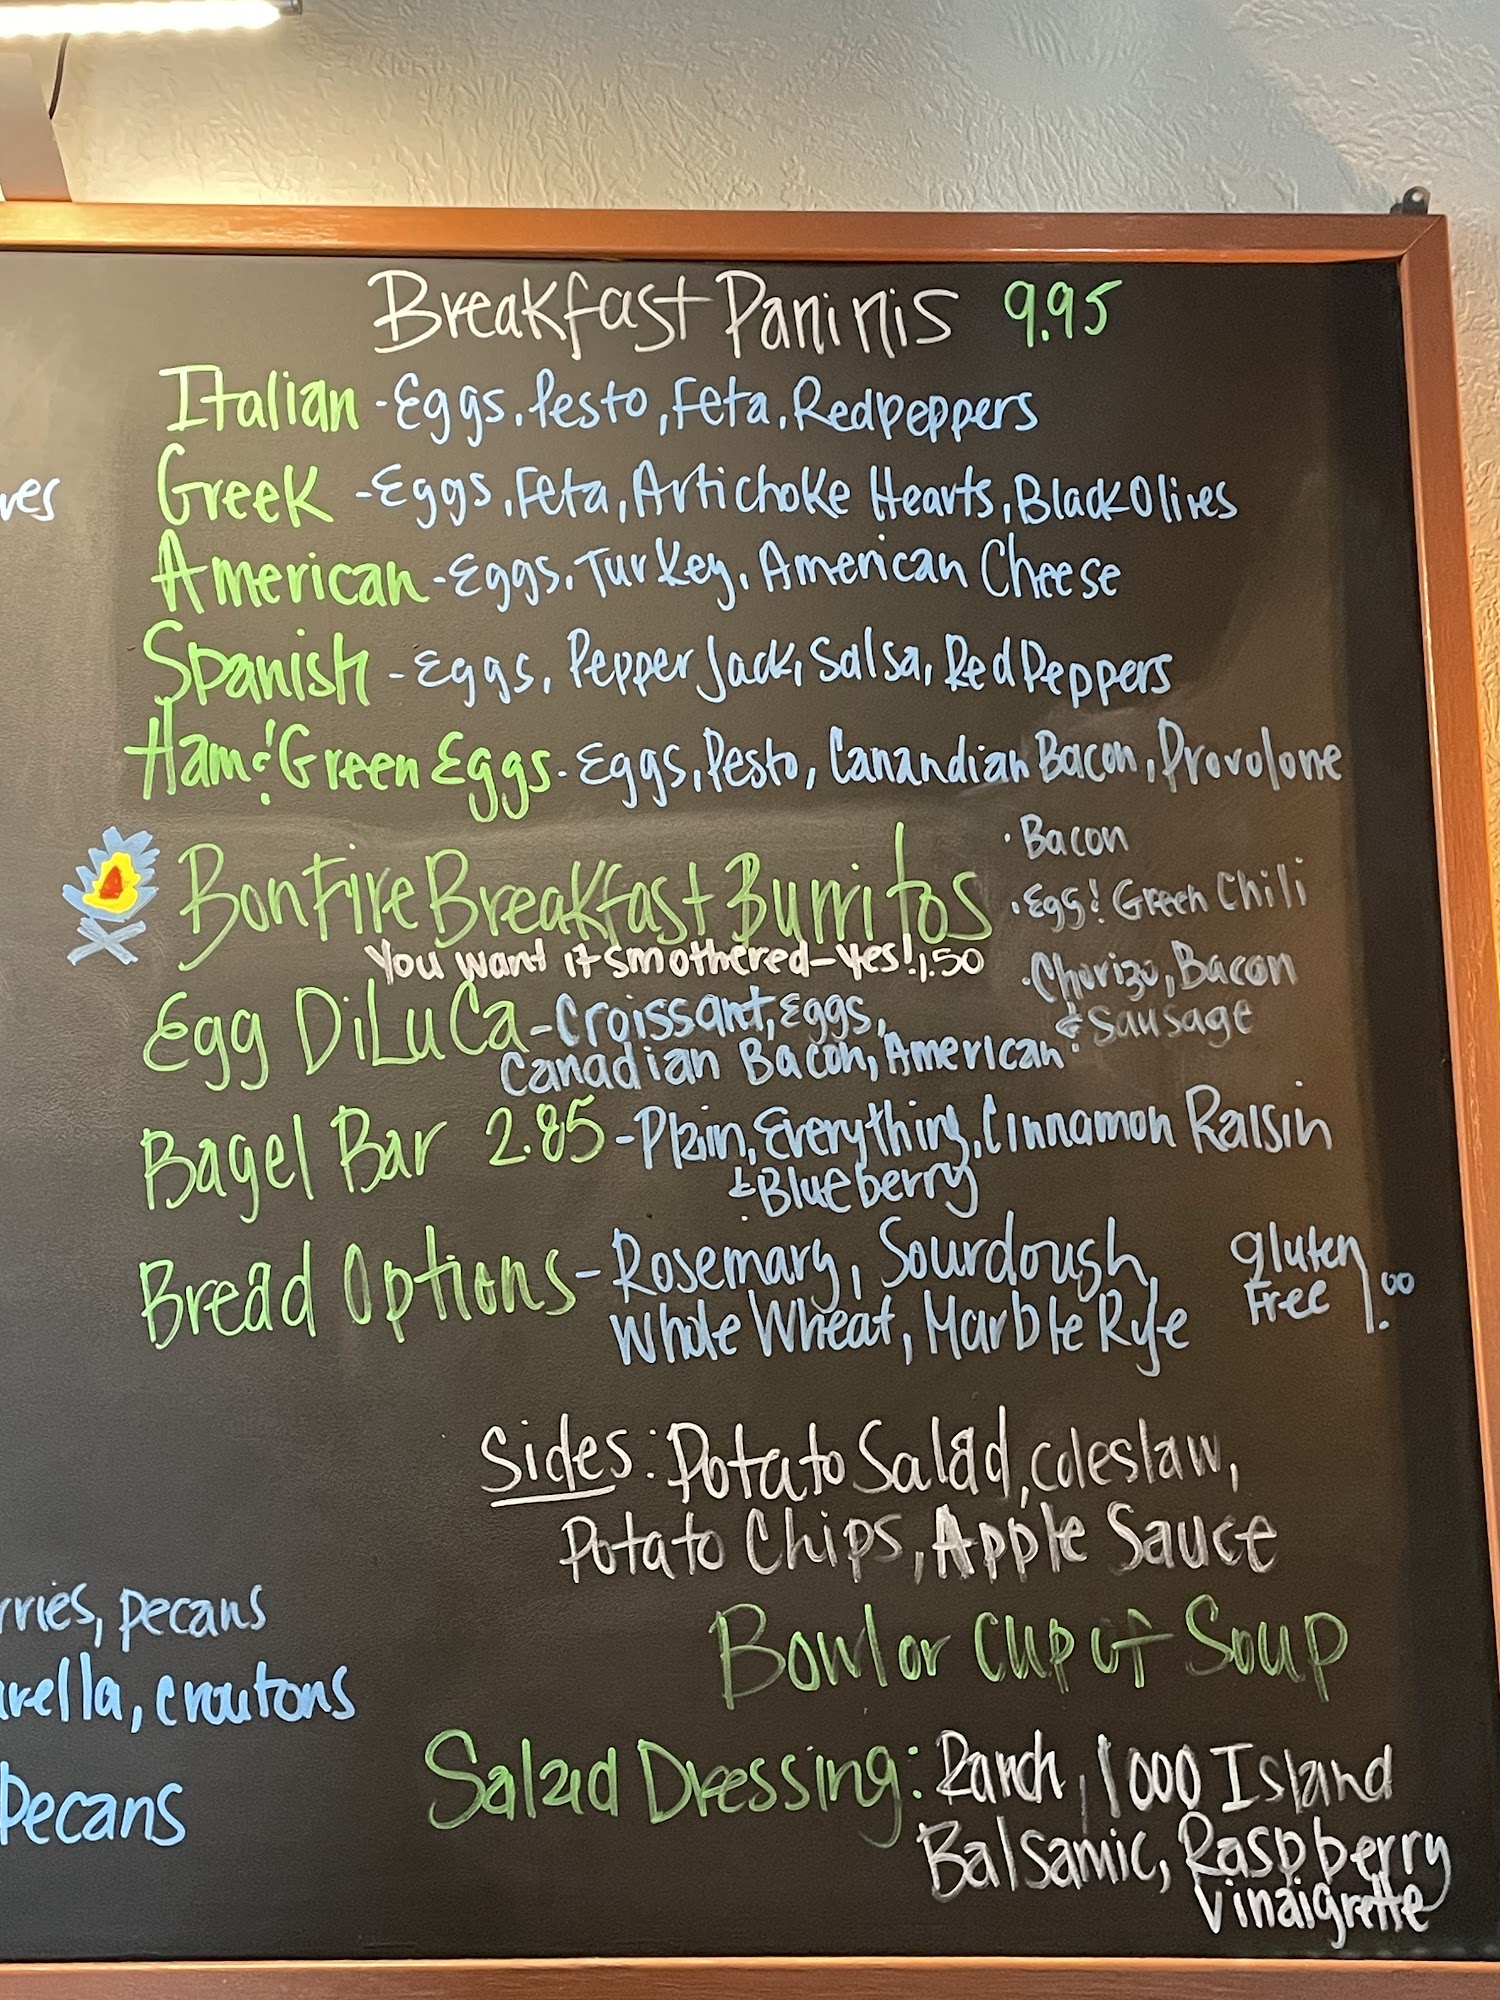 Breakfast Paninis 9.95
Italian - Eggs, Pesto, Feta, Red Peppers
Greek - Eggs, Feta, Artichoke Hearts, Black Olives
American - Eggs, Turkey, American Cheese
Spanish - Eggs, Pepper Jack, Salsa, Red Peppers
Ham & Green Eggs - Eggs, Pesto, Canandian Bacon, Provolone
BonFire Breakfast Burritos
You want it smothered - Yes! 1.50
· Bacon
· Egg & Green Chili
· Chorizo, Bacon
& Sausage
Egg DiLuCa - Croissant, Eggs,
Canadian Bacon, American
Bagel Bar 2.85 - Plain, Everything, Cinnamon Raisin
& Blueberry
Bread Options - Rosemary, Sourdough,
Whole Wheat, Marble Rye
Gluten
Free 1.00
Sides: Potato Salad, Coleslaw,
Potato Chips, Apple Sauce
Bowl or Cup of Soup
Salad Dressing: Ranch, 1000 Island
Balsamic, Raspberry
Vinaigrette
pecans
croutons
Pecans